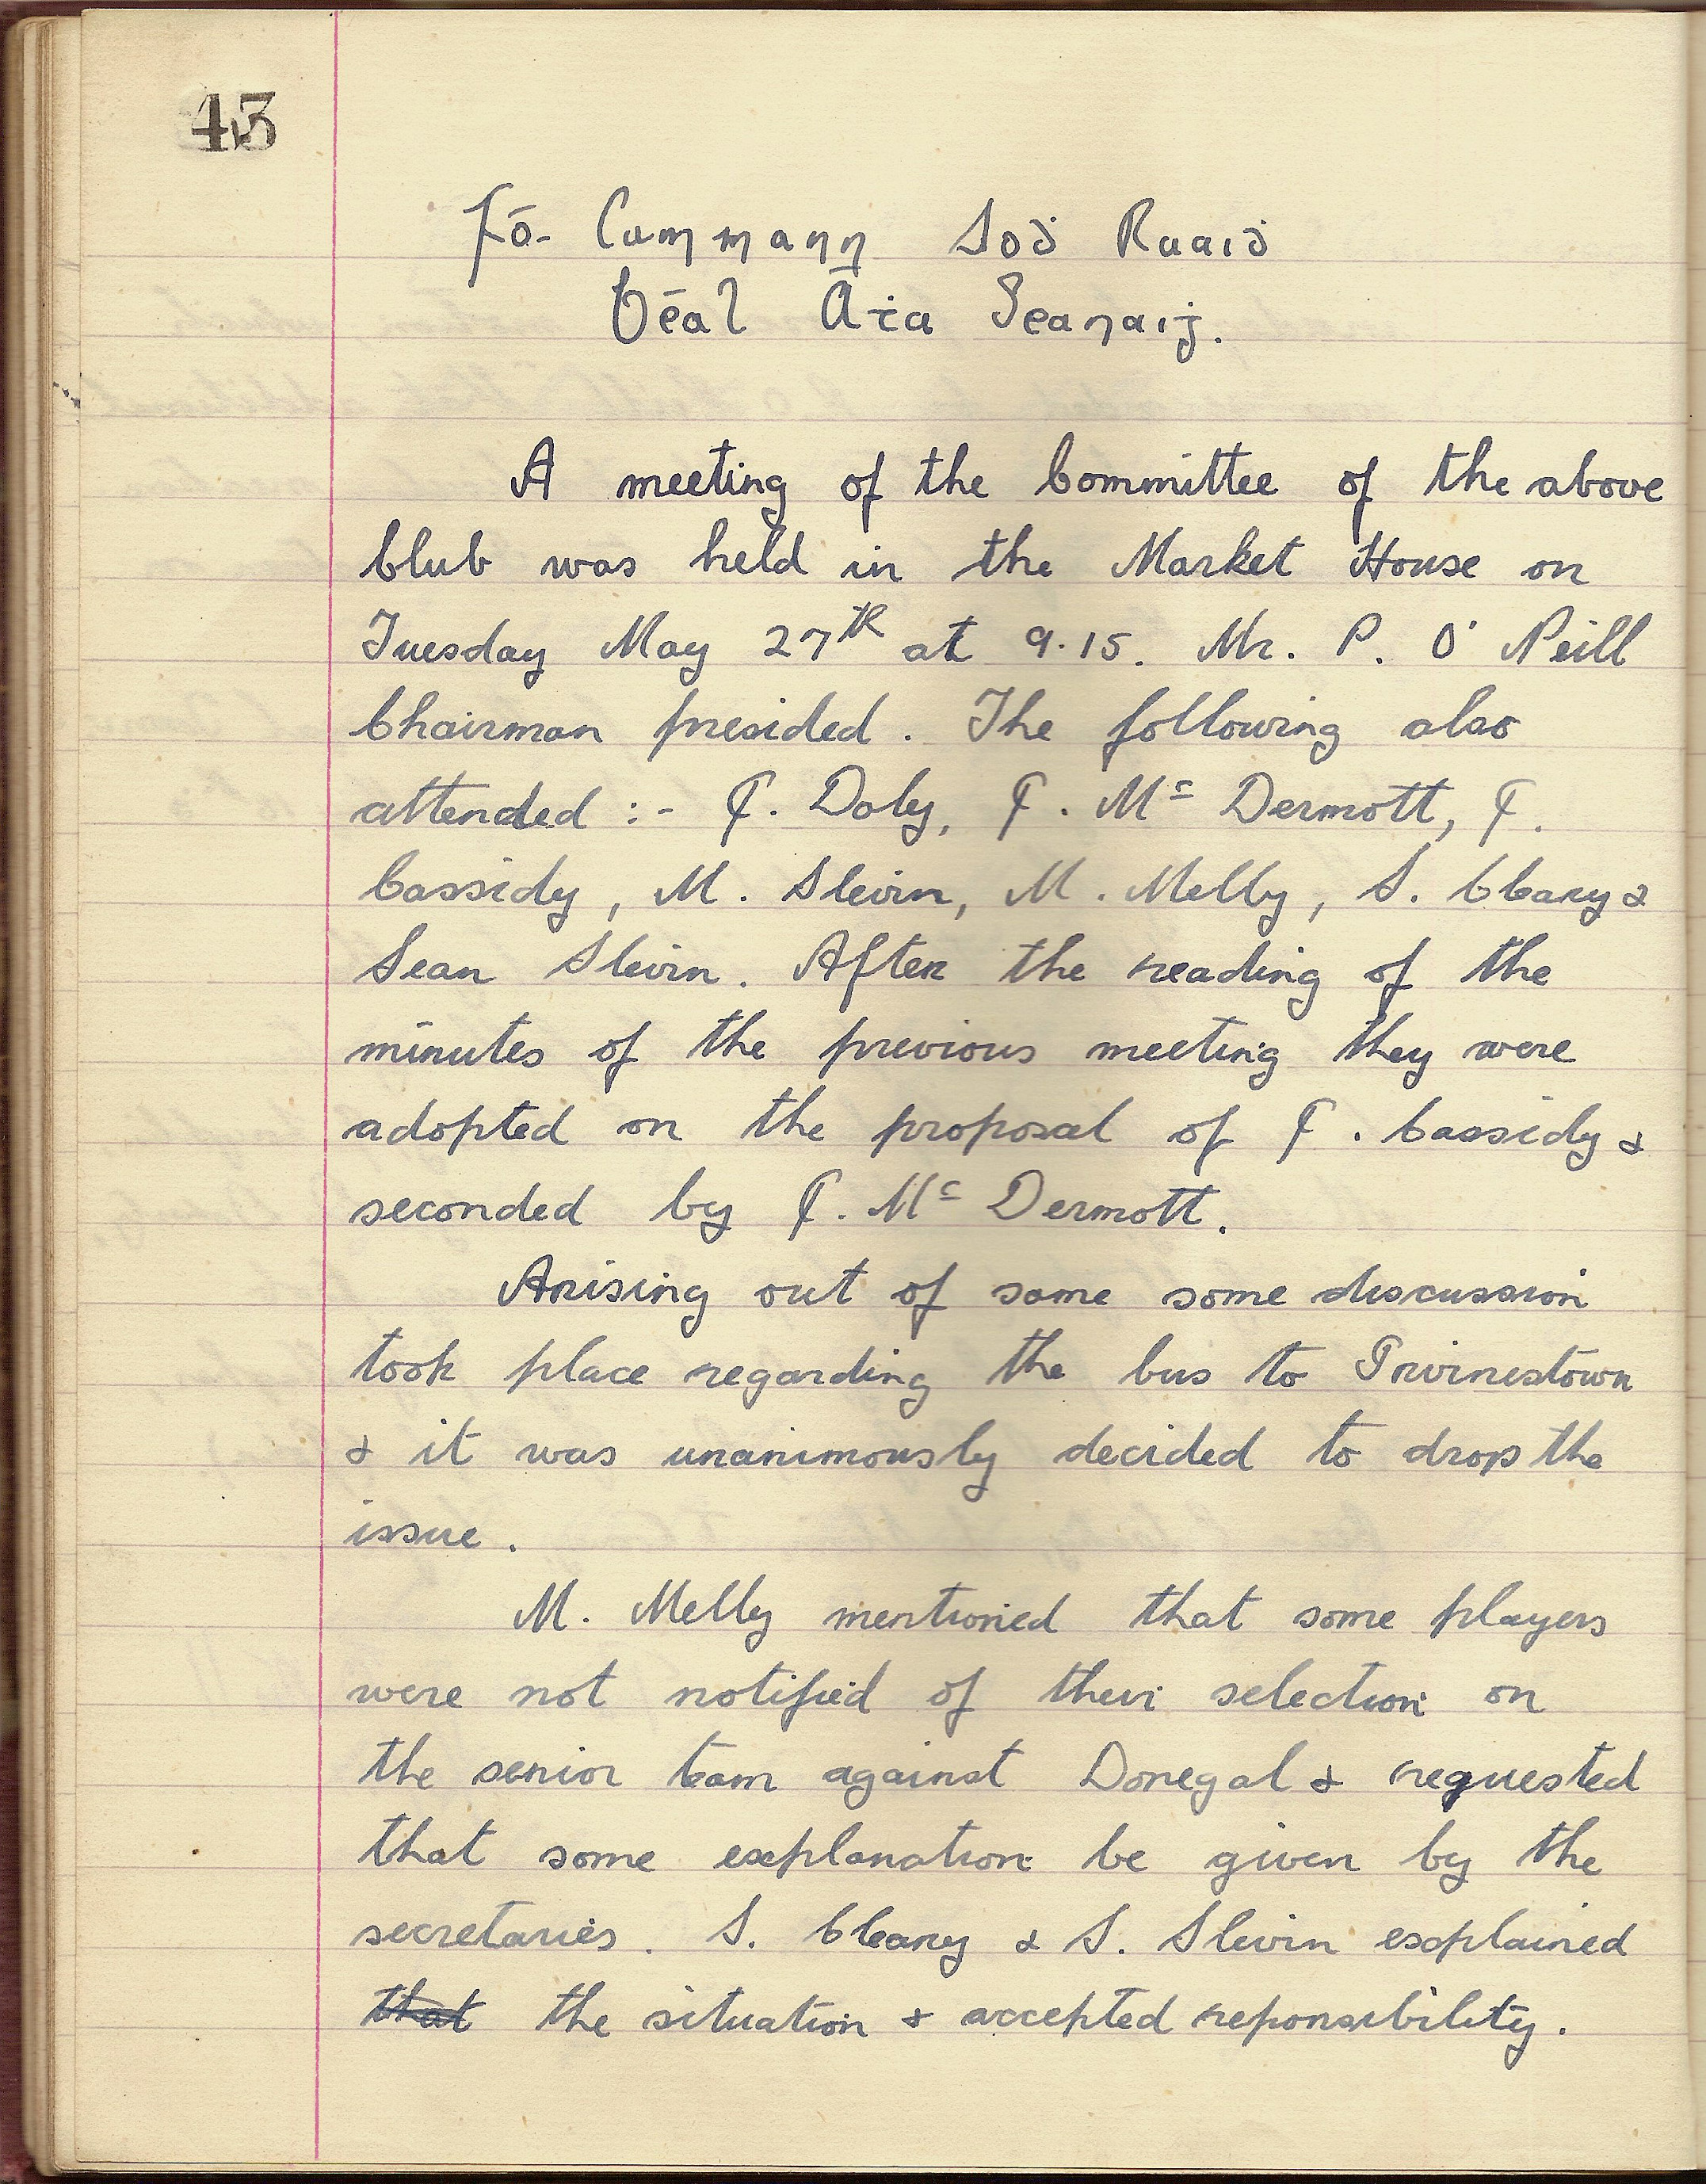 43
Fó- Cummann Aoḋ Ruaiḋ
Béal Áṫa Seanaiġ.
A meeting of the Committee of the above
Club was held in the Market House on
Tuesday May 27th at 9.15. Mr. P. O' Neill
Chairman presided. The following also
attended :- F. Daly, F. Mc Dermott, F.
Cassidy, M. Slevin, M. Melly, S. Cleary &
Sean Slevin. After the reading of the
minutes of the previous meeting they were
adopted on the proposal of F. Cassidy &
seconded by F. Mc Dermott.
Arising out of same some discussion
took place regarding the bus to Irvinestown
& it was unanimously decided to drop the
issue.
M. Melly mentioned that some players
were not notified of their selection on
the senior team against Donegal & requested
that some explanation be given by the
secretaries. S. Cleary & S. Slevin explained
that the situation & accepted reponsibility.